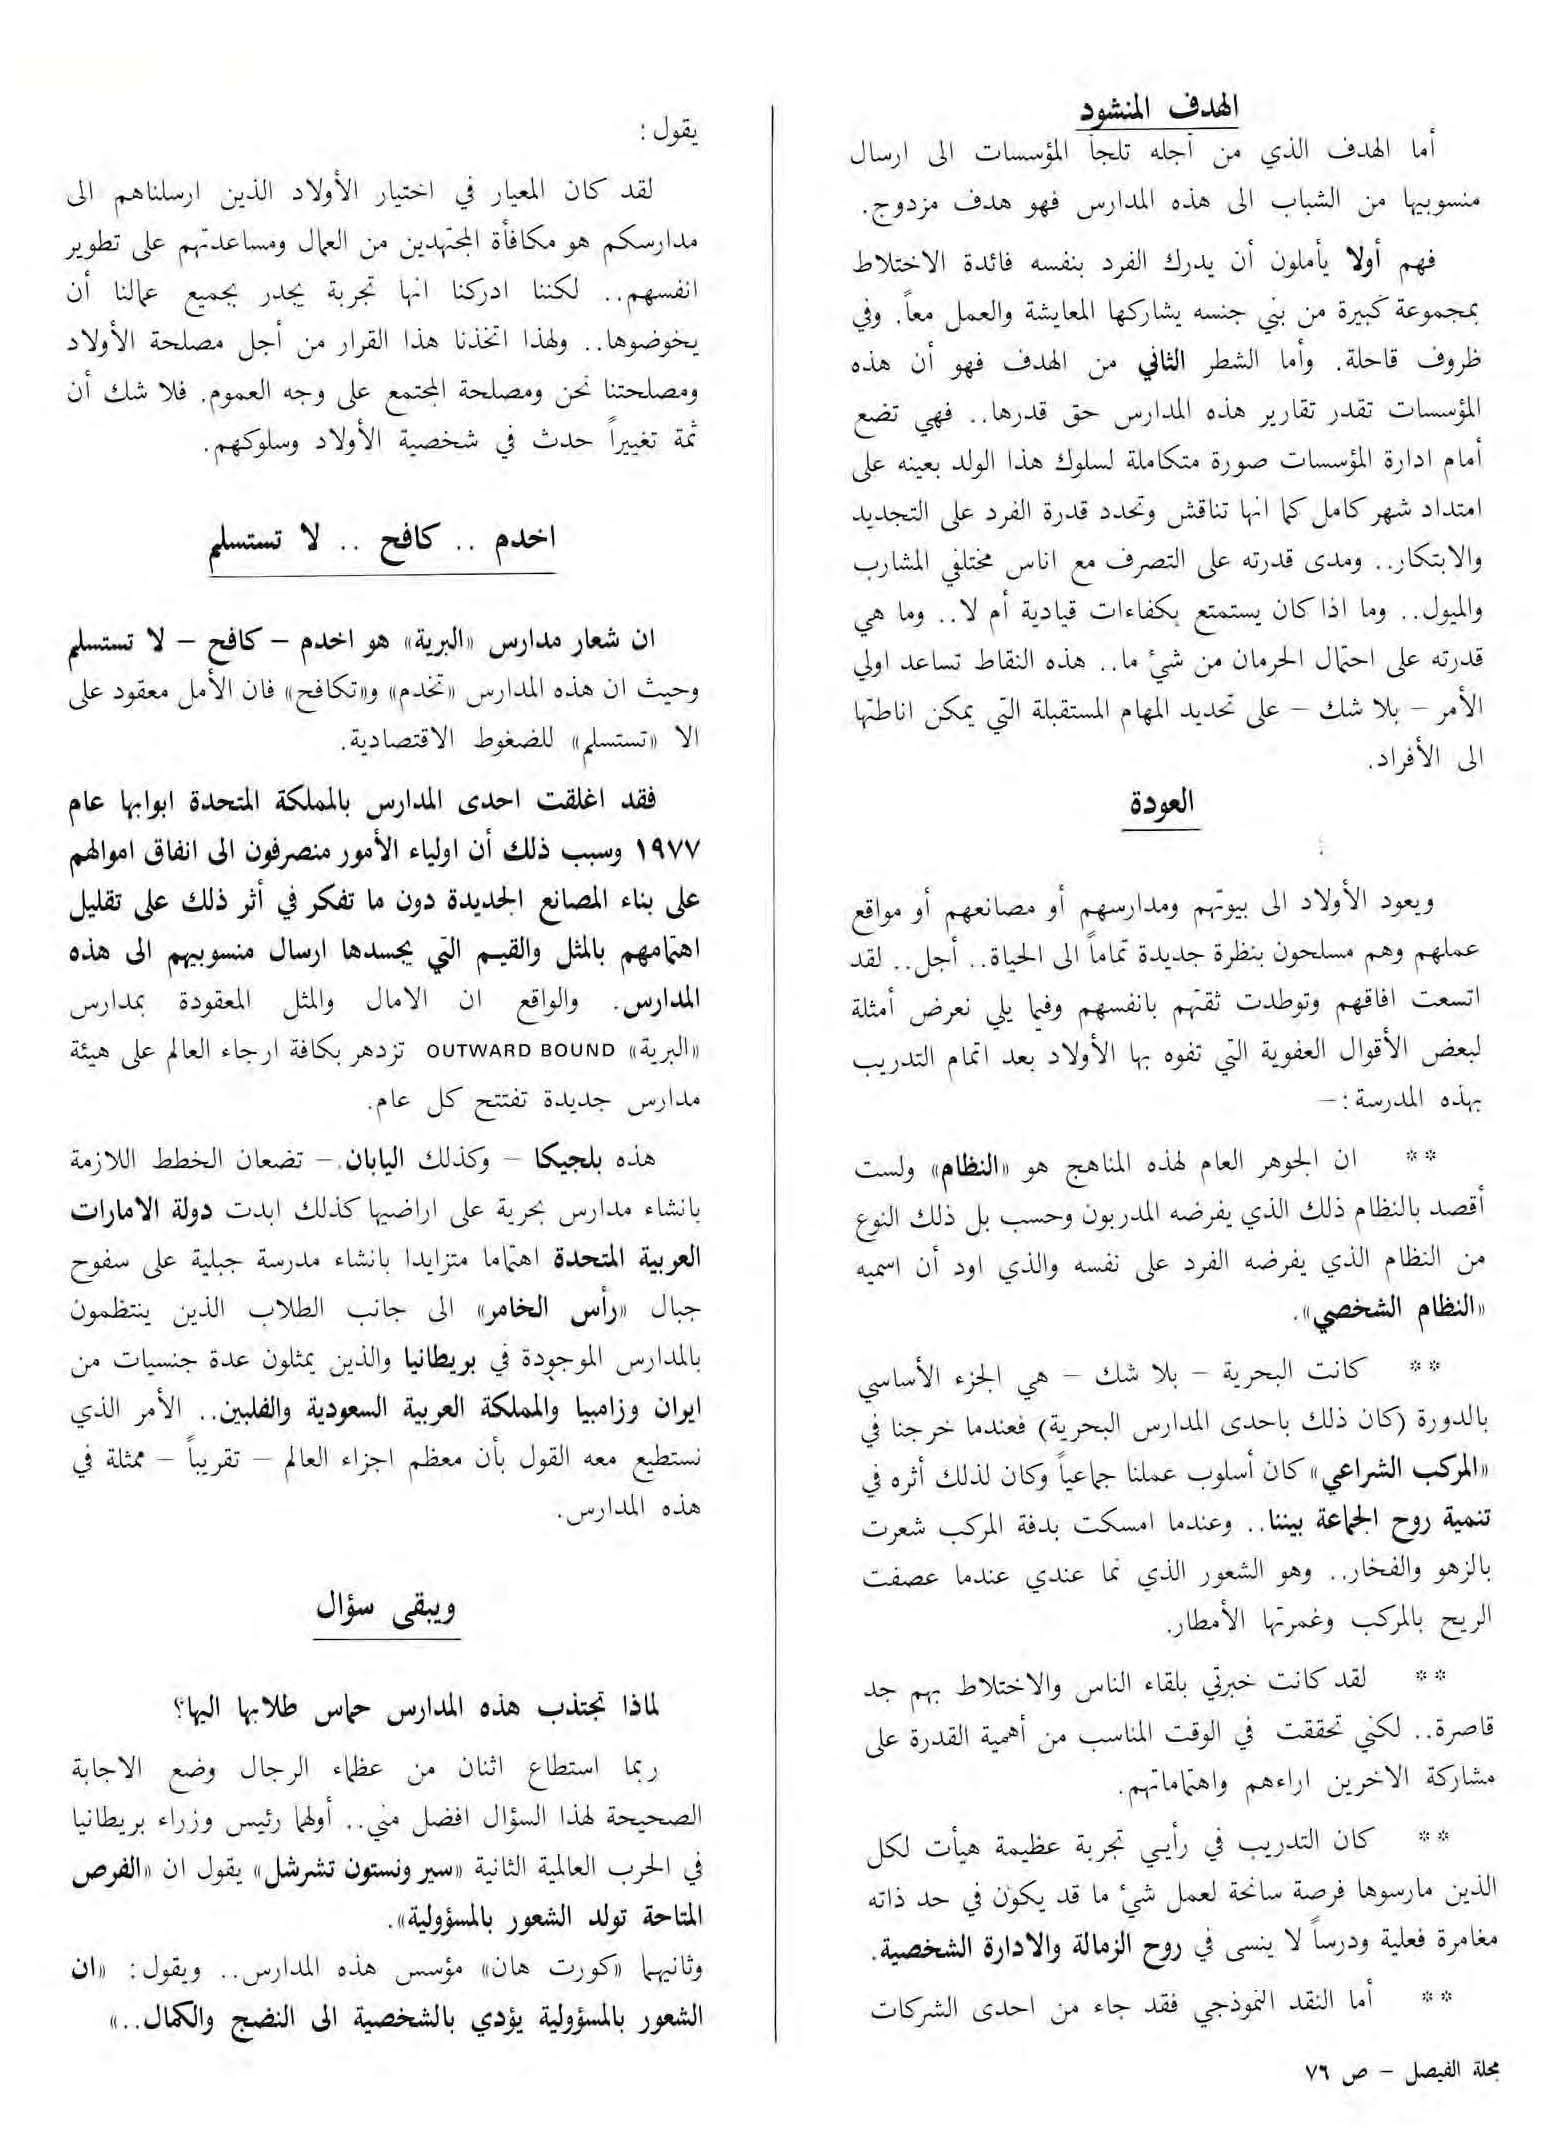 الهدف المنشود
أما الهدف الذي من أجله تلجأ المؤسسات الى ارسال
منسوبيها من الشباب الى هذه المدارس فهو هدف مزدوج.
فهم أولا يأملون أن يدرك الفرد بنفسه فائدة الاختلاط
بمجموعة كبيرة من بني جنسه يشاركها المعايشة والعمل معاً. وفي
ظروف قاحلة. وأما الشطر الثاني من الهدف فهو أن هذه
المؤسسات تقدر تقارير هذه المدارس حق قدرها.. فهي تضع
أمام ادارة المؤسسات صورة متكاملة لسلوك هذا الولد بعينه على
امتداد شهر كامل كما انها تناقش وتحدد قدرة الفرد على التجديد
والابتكار.. ومدى قدرته على التصرف مع اناس مختلفي المشارب
والميول.. وما اذا كان يستمتع بكفاءات قيادية أم لا.. وما هي
قدرته على احتمال الحرمان من شيء ما.. هذه النقاط تساعد اولي
الأمر – بلا شك – على تحديد المهام المستقبلة التي يمكن اناطتها
الى الأفراد.
العودة
ويعود الأولاد الى بيوتهم ومدارسهم أو مصانعهم أو مواقع
عملهم وهم مسلحون بنظرة جديدة تماماً الى الحياة.. أجل.. لقد
اتسعت افاقهم وتوطدت ثقتهم بانفسهم وفيما يلي نعرض أمثلة
لبعض الأقوال العفوية التي تفوه بها الأولاد بعد اتمام التدريب
بهذه المدرسة:–
** ان الجوهر العام لهذه المناهج هو «النظام» ولست
أقصد بالنظام ذلك الذي يفرضه المدربون وحسب بل ذلك النوع
من النظام الذي يفرضه الفرد على نفسه والذي اود أن اسميه
«النظام الشخصي».
** كانت البحرية – بلا شك – هي الجزء الأساسي
بالدورة (كان ذلك باحدى المدارس البحرية) فعندما خرجنا في
«المركب الشراعي» كان أسلوب عملنا جماعياً وكان لذلك أثره في
تنمية روح الجماعة بيننا.. وعندما امسكت بدفة المركب شعرت
بالزهو والفخار.. وهو الشعور الذي نما عندي عندما عصفت
الريح بالمركب وغمرتها الأمطار.
** لقد كانت خبرتي بلقاء الناس والاختلاط بهم جد
قاصرة.. لكني تحققت في الوقت المناسب من أهمية القدرة على
مشاركة الاخرين اراءهم واهتماماتهم.
** كان التدريب في رأيي تجربة عظيمة هيأت لكل
الذين مارسوها فرصة سانحة لعمل شيء ما قد يكون في حد ذاته
مغامرة فعلية ودرساً لا ينسى في روح الزمالة والادارة الشخصية.
** أما النقد النموذجي فقد جاء من احدى الشركات
يقول:
لقد كان المعيار في اختيار الأولاد الذين ارسلناهم الى
مدارسكم هو مكافأة المجتهدين من العمال ومساعدتهم على تطوير
انفسهم.. لكننا ادركنا انها تجربة يجدر بجميع عمالنا أن
يخوضوها.. ولهذا اتخذنا هذا القرار من أجل مصلحة الأولاد
ومصلحتنا نحن ومصلحة المجتمع على وجه العموم. فلا شك أن
ثمة تغييراً حدث في شخصية الأولاد وسلوكهم.
اخدم .. كافح .. لا تستسلم
ان شعار مدارس «البرية» هو اخدم – كافح – لا تستسلم
وحيث ان هذه المدارس «تخدم» و«تكافح» فان الأمل معقود على
الا «تستسلم» للضغوط الاقتصادية.
فقد اغلقت احدى المدارس بالمملكة المتحدة ابوابها عام
١٩٧٧ وسبب ذلك أن اولياء الأمور منصرفون الى انفاق اموالهم
على بناء المصانع الجديدة دون ما تفكر في أثر ذلك على تقليل
اهتمامهم بالمثل والقيم التي يجسدها ارسال منسوبيهم الى هذه
المدارس. والواقع ان الامال والمثل المعقودة بمدارس
«البرية» OUTWARD BOUND تزدهر بكافة ارجاء العالم على هيئة
مدارس جديدة تفتتح كل عام.
هذه بلجيكا – وكذلك اليابان – تضعان الخطط اللازمة
بانشاء مدارس بحرية على اراضيها كذلك ابدت دولة الامارات
العربية المتحدة اهتماما متزايدا بانشاء مدرسة جبلية على سفوح
جبال «رأس الخامر» الى جانب الطلاب الذين ينتظمون
بالمدارس الموجودة في بريطانيا والذين يمثلون عدة جنسيات من
ايران وزامبيا والمملكة العربية السعودية والفلبين.. الأمر الذي
نستطيع معه القول بأن معظم اجزاء العالم – تقريباً – ممثلة في
هذه المدارس.
ويبقى سؤال
لماذا تجتذب هذه المدارس حماس طلابها اليها؟
ربما استطاع اثنان من عظماء الرجال وضع الاجابة
الصحيحة لهذا السؤال افضل مني.. أولهما رئيس وزراء بريطانيا
في الحرب العالمية الثانية «سير ونستون تشرشل» يقول ان «الفرص
المتاحة تولد الشعور بالمسؤولية».
وثانيهما «كورت هان» مؤسس هذه المدارس.. ويقول: «ان
الشعور بالمسؤولية يؤدي بالشخصية الى النضج والكمال..»
مجلة الفيصل – ص ٧٦